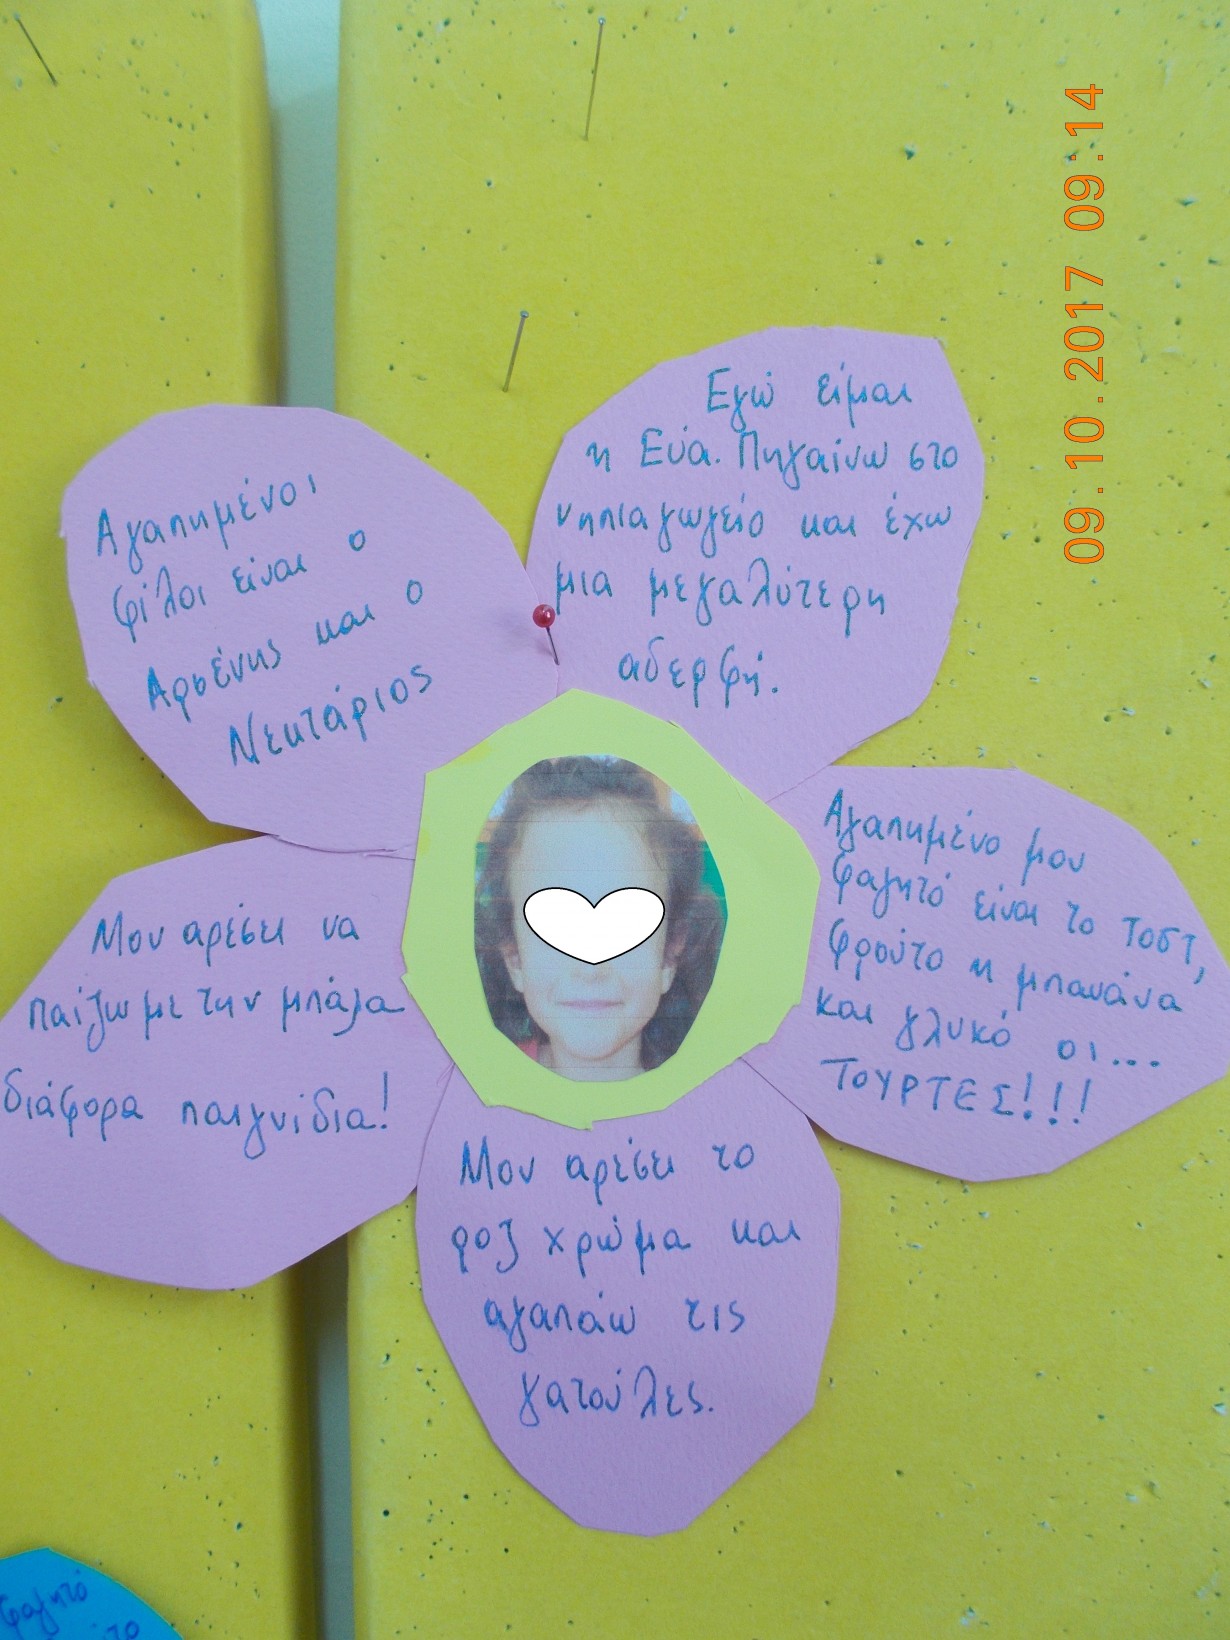 09.10.2017 09:14
Εγώ είμαι
η Εύα. Πηγαίνω στο
νηπιαγωγείο και έχω
μια μεγαλύτερη
αδερφή.
Αγαπημένο μου
φαγητό είναι το τοστ,
φρούτο η μπανάνα
και γλυκό οι...
ΤΟΥΡΤΕΣ!!!
Μου αρέσει το
ροζ χρώμα και
αγαπάω τις
γατούλες.
Μου αρέσει να
παίζω με την μπάλα
διάφορα παιγνίδια!
Αγαπημένοι
φίλοι είναι ο
Αρσένης και ο
Νεκτάριος
φαγητό